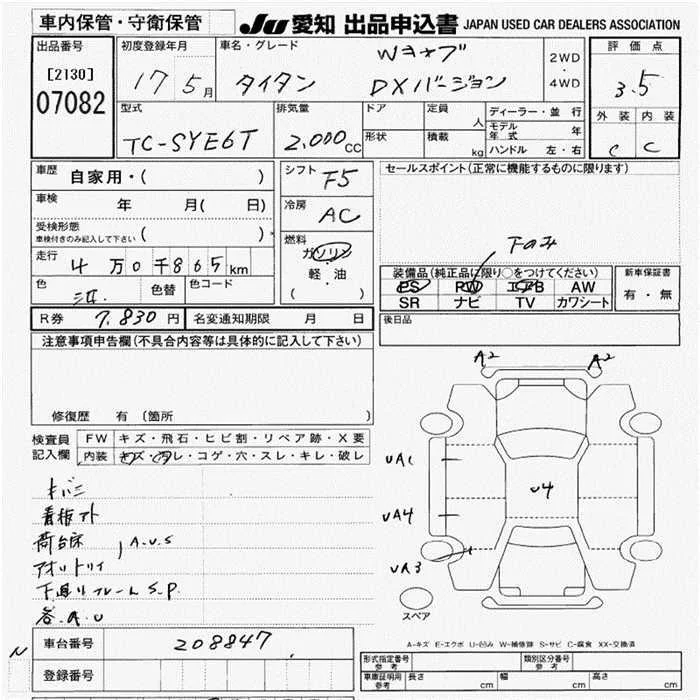 車内保管・守衛保管
JU 愛知 出品申込書 JAPAN USED CAR DEALERS ASSOCIATION
出品番号
[2130]
07082
初度登録年月
17 5月
車名・グレード
Wキャブ
タイタン DXバージョン
2WD
・
4WD
評価点
3.5
外装 内装
C C
型式
TC-SYE6T
排気量
2.000cc
ドア
形状
定員 人
積載 kg
ディーラー・並行
モデル年式 年
ハンドル 左・右
車歴 自家用・( )
車検 年 月( 日)
受検形態
車検付きのみ記入して下さい ( )
走行 4万0千865km
色 色替 色コード
シフト F5
冷房 AC
燃料
ガソリン
軽・油
( )
セールスポイント(正常に機能するものに限ります)
下のみ
装備品(純正品に限り○をつけてください)
PS PW エアB AW
SR ナビ TV カワシート
新車保証書
有・無
R券 7.830円 名変通知期限 月 日
後日品
注意事項申告欄(不具合内容等は具体的に記入して下さい)
修復歴 有 (箇所
検査員
記入欄
FW キズ・飛石・ヒビ割・リペア跡・X要
内装 キズ・汚レ・コゲ・穴・スレ・キレ・破レ
キバミ
看板アト
荷台床 A.U.S
アオリトリイ
下廻りフレームS.P.
各.A.U
A2 A2
UA1
U4
UA4
UA3
スペア
A-キズ E-エクボ U-凹み W-補修跡 S-サビ C-腐食 XX-交換済
N
車台番号 208847
登録番号
形式指定番号
参考
類別区分番号
参考
車庫証明用
参考
長さ cm 幅 cm 高さ cm